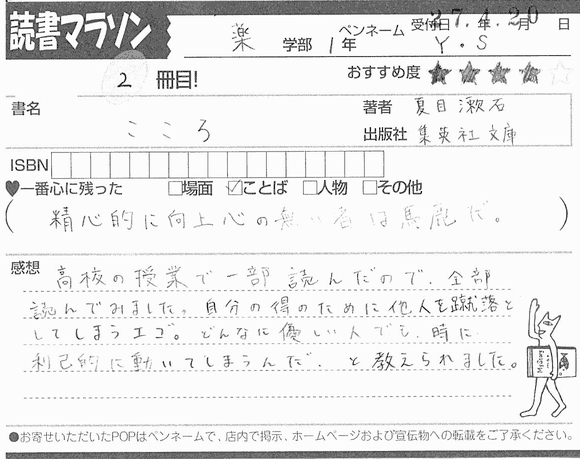 読書マラソン
薬 学部 1年 ペンネーム Y・S
受付日 27年4月20日
2 冊目!
おすすめ度 ★★★★☆
書名 こころ
著者 夏目漱石
出版社 集英社文庫
ISBN
♥一番心に残った □場面 ☑ことば □人物 □その他
(精心的に向上心の無い者は馬鹿だ。)
感想
高校の授業で一部読んだので、全部
読んでみました。自分の得のために他人を蹴落と
してしまうエゴ。どんなに優しい人でも、時に
利己的に動いてしまうんだ、と教えられました。
●お寄せいただいたPOPはペンネームで、店内で掲示、ホームページおよび宣伝物への転載をご了承ください。